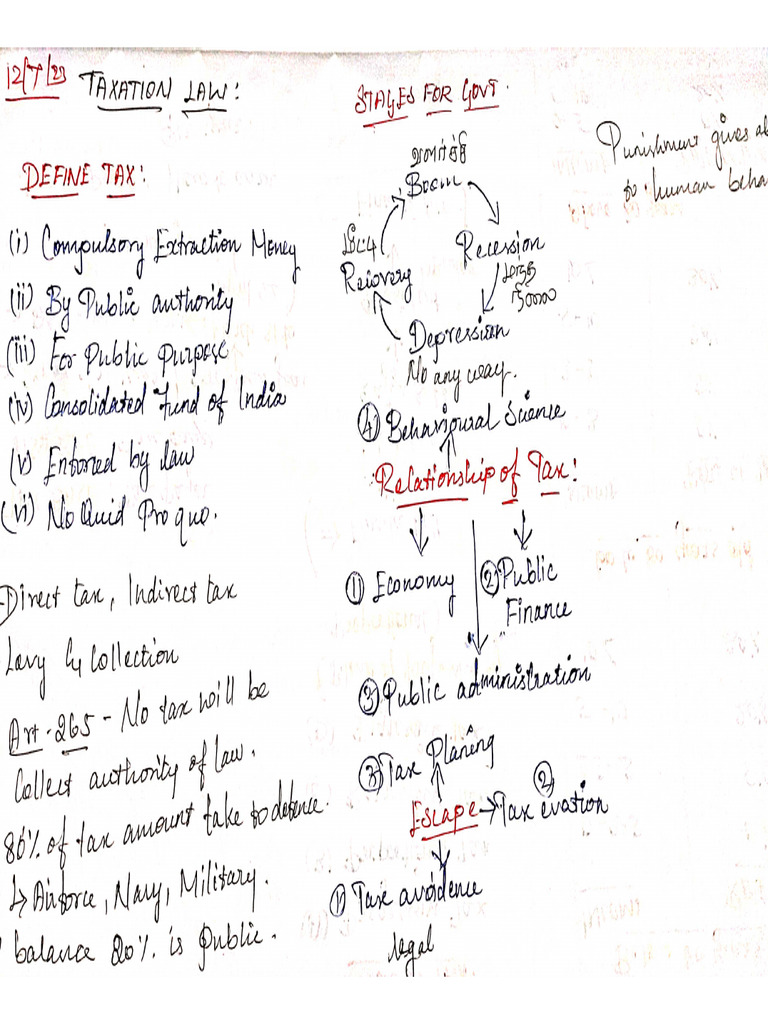 12/7/23
TAXATION LAW:
DEFINE TAX:
(i) Compulsory Extraction Money
(ii) By Public authority
(iii) For Public Purpose
(iv) Consolidated Fund of India
(v) Enforced by law
(vi) No Quid Pro quo.
Direct tax, Indirect tax
Levy & Collection
Art-265 - No tax will be
Collect authority of law.
80% of tax amount take to defence.
↳ Airforce, Navy, Military.
balance 20% is public.
STAGES FOR GOVT.
வளர்ச்சி
Boom
Recession
மந்த
நிலை
Depression
No any way.
Recovery
④ Behavioural Science
Relationship of Tax:
① Economy
② Public
Finance
③ Public administration
③ Tax Planing
Escape → Tax evation
②
① Tax avoidence
legal
Punishment gives
to human